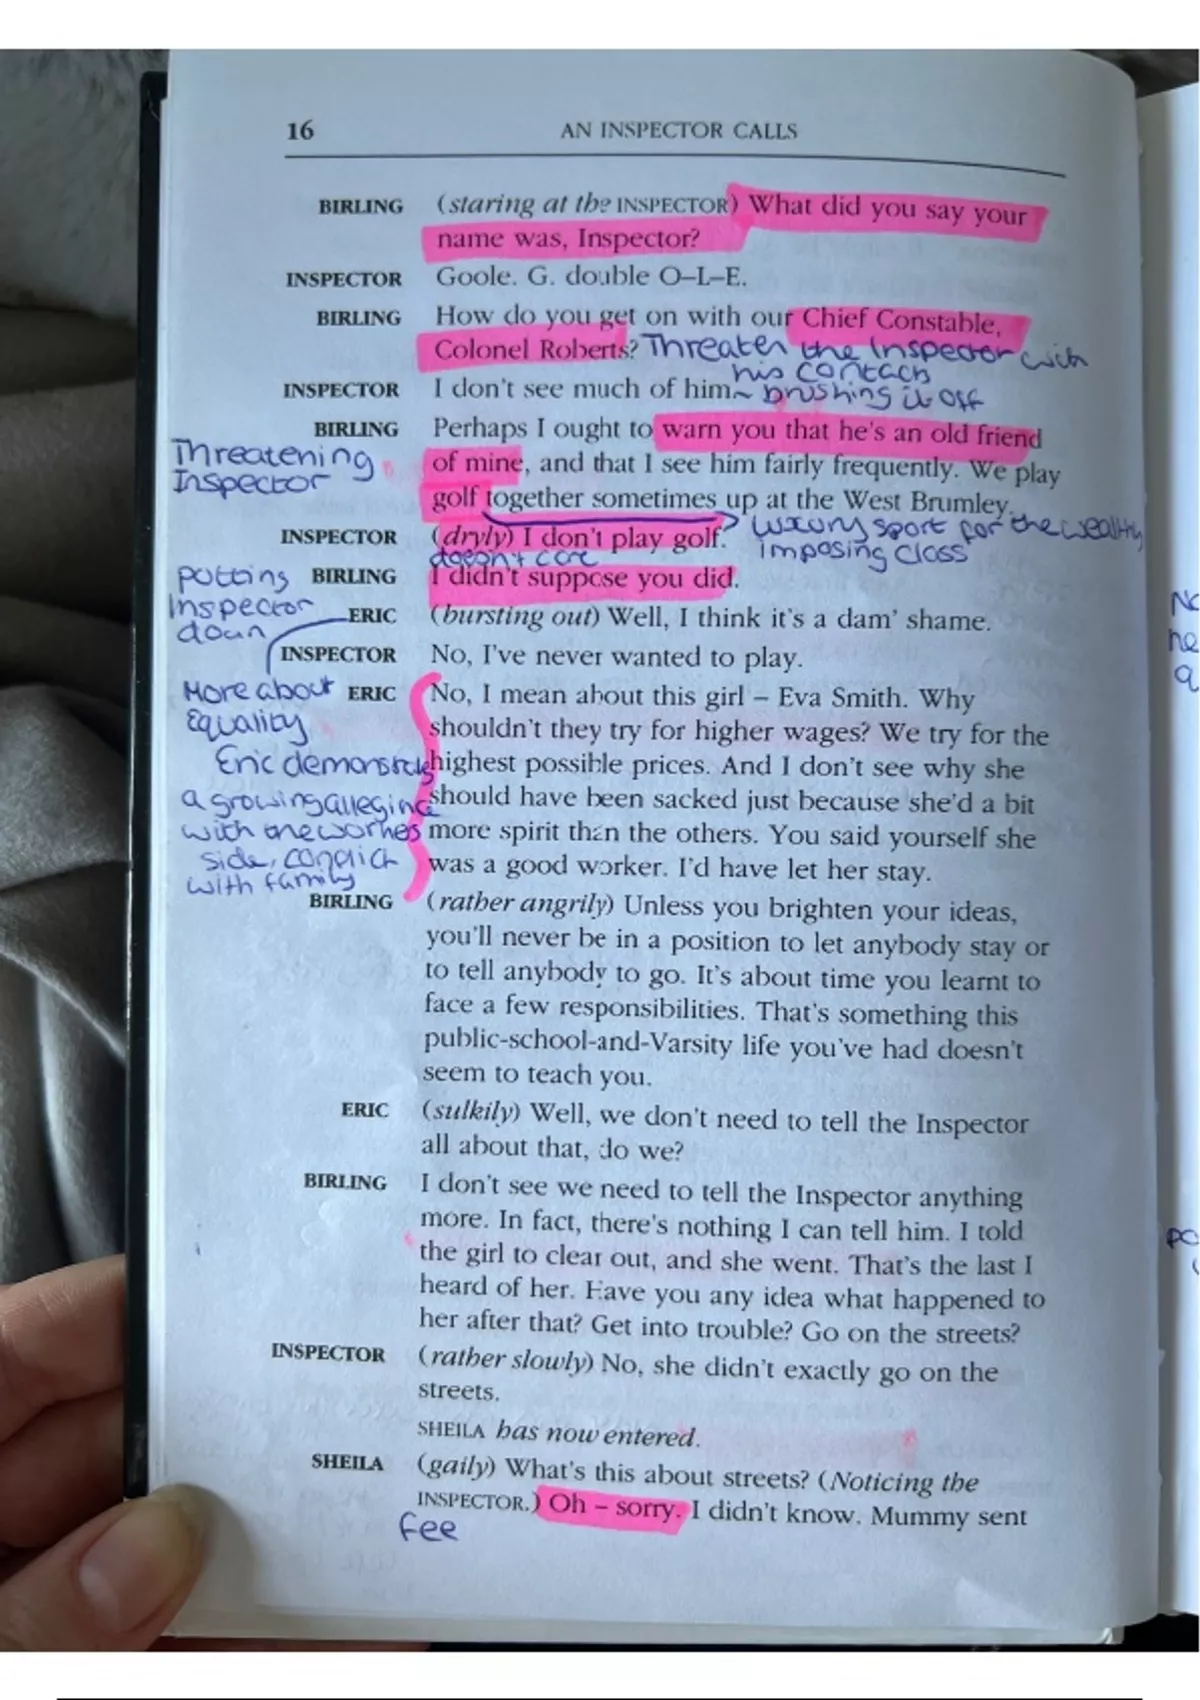 16
AN INSPECTOR CALLS
BIRLING (staring at the INSPECTOR) What did you say your
name was, Inspector?
INSPECTOR Goole. G. double O–L–E.
BIRLING How do you get on with our Chief Constable,
Colonel Roberts? Threaten the Inspector with
his contacts
INSPECTOR I don't see much of him~ brushing it off
BIRLING Perhaps I ought to warn you that he's an old friend
Threatening
of mine, and that I see him fairly frequently. We play
Inspector
golf together sometimes up at the West Brumley.
luxury sport for the wealthy
INSPECTOR (dryly) I don't play golf.
imposing class
doesn't care
putting BIRLING I didn't suppose you did.
Inspector
down
ERIC (bursting out) Well, I think it's a dam' shame.
INSPECTOR No, I've never wanted to play.
More about ERIC No, I mean about this girl – Eva Smith. Why
Equality shouldn't they try for higher wages? We try for the
Eric demonstrates highest possible prices. And I don't see why she
a growing should have been sacked just because she'd a bit
with the more spirit than the others. You said yourself she
side, was a good worker. I'd have let her stay.
with family
BIRLING (rather angrily) Unless you brighten your ideas,
you'll never be in a position to let anybody stay or
to tell anybody to go. It's about time you learnt to
face a few responsibilities. That's something this
public-school-and-Varsity life you've had doesn't
seem to teach you.
ERIC (sulkily) Well, we don't need to tell the Inspector
all about that, do we?
BIRLING I don't see we need to tell the Inspector anything
more. In fact, there's nothing I can tell him. I told
the girl to clear out, and she went. That's the last I
heard of her. Have you any idea what happened to
her after that? Get into trouble? Go on the streets?
INSPECTOR (rather slowly) No, she didn't exactly go on the
streets.
SHEILA has now entered.
SHEILA (gaily) What's this about streets? (Noticing the
INSPECTOR.) Oh – sorry. I didn't know. Mummy sent